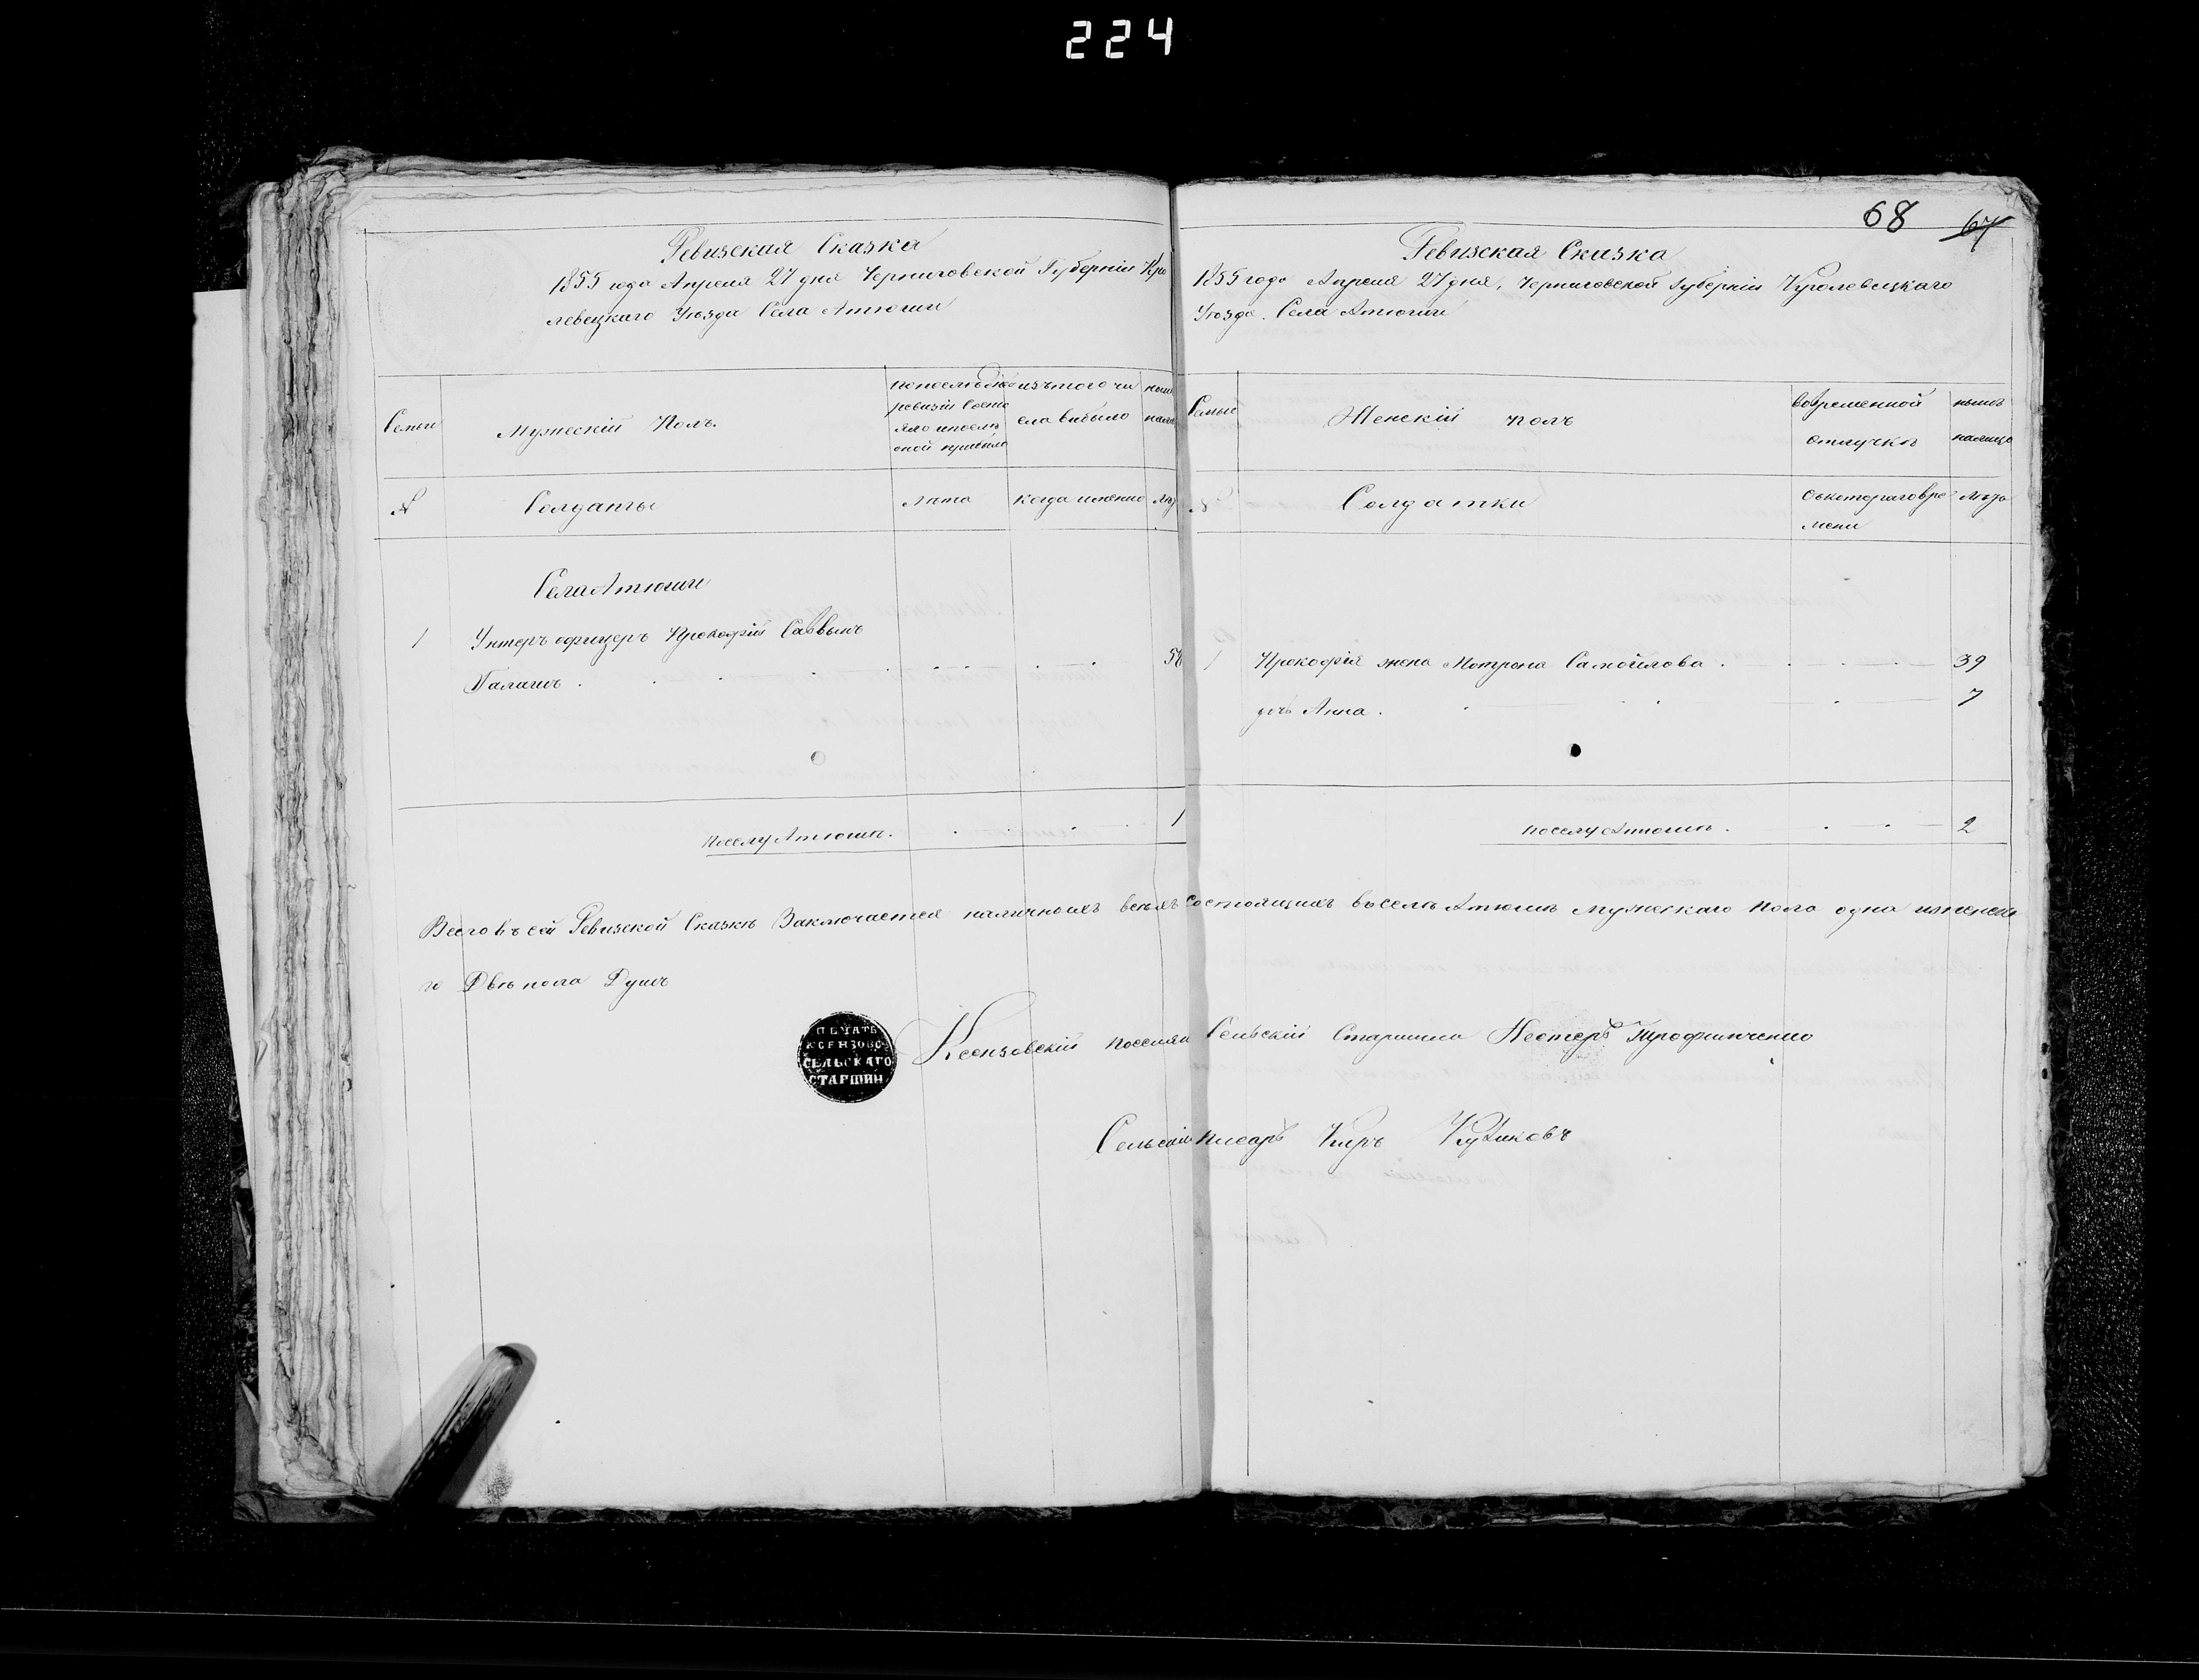 224
68 67
Ревизская Сказка
1855 года Апреля 27 дня Черниговской Губерніи Кро
левецкаго Уѣзда Села Атюши
Семьи
Мужескій Полъ.
по последней
ревизіи Состо
яло и после
оной прибыло
изъ того чи
сла выбыло
№
Солдаты
Лѣта
когда именно
Села Атюши
1 Унтеръ офицеръ Прокофій Саввинъ
Галаганъ
по селу Атюши. 1
Ревизская Сказка
1855 года Апреля 27 дня, Черниговской Губерніи Кролевецкаго
Уѣзда. Села Атюши
Семьи
Женскій полъ
во временной
отлучкѣ
нынѣ
налицо
№
Солдатки
съ котораго вре
мени
Лѣта
1 Прокофія жена Мотрона Самойлова . 39
дочь Анна . 7
по селу Атюши . 2
Всего въ сей Ревизской Сказкѣ Заключается наличныхъ всѣхъ состоящихъ въ селѣ Атюши мужескаго пола одна и женска
го Двѣ пола Душъ
ПЕЧАТЬ
КСЕНЗОВС
СЕЛЬСКАГО
СТАРШИН
Ксензовскій Сельскій Старшина Нестеръ Трофименко
Сельскій писарь Киръ